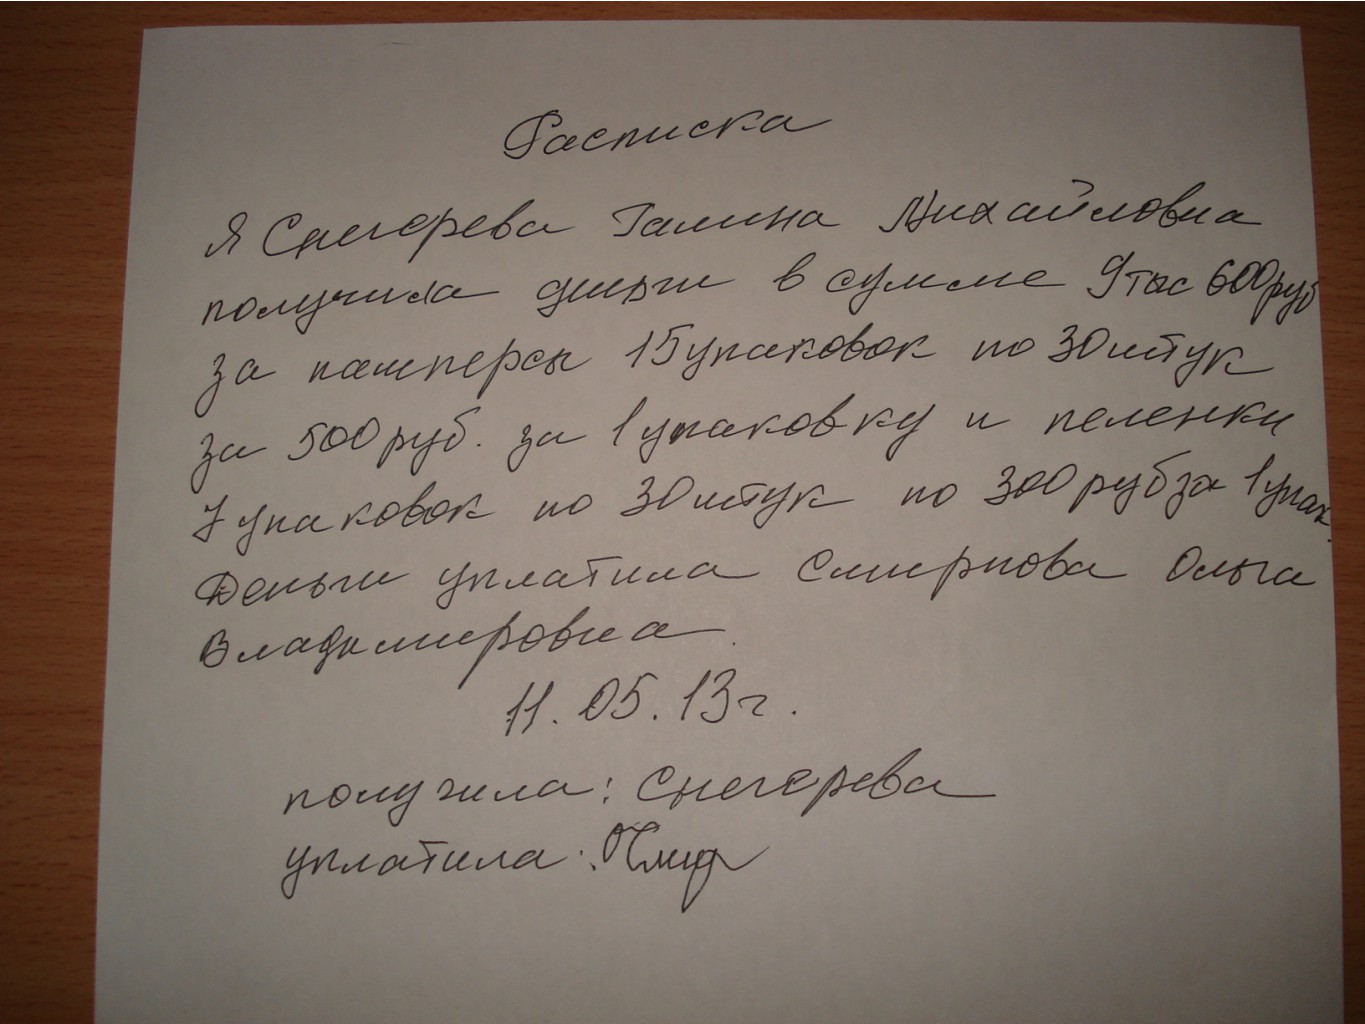 Расписка
Я Снегерева Галина Михайловна
получила деньги в сумме 9тыс 600руб
за памперсы 15упаковок по 30штук
за 500руб. за 1упаковку и пеленки
7упаковок по 30штук по 300рубза 1упак.
Деньги уплатила Смирнова Ольга
Владимировна.
11.05.13г.
получила: Снегерева
уплатила: